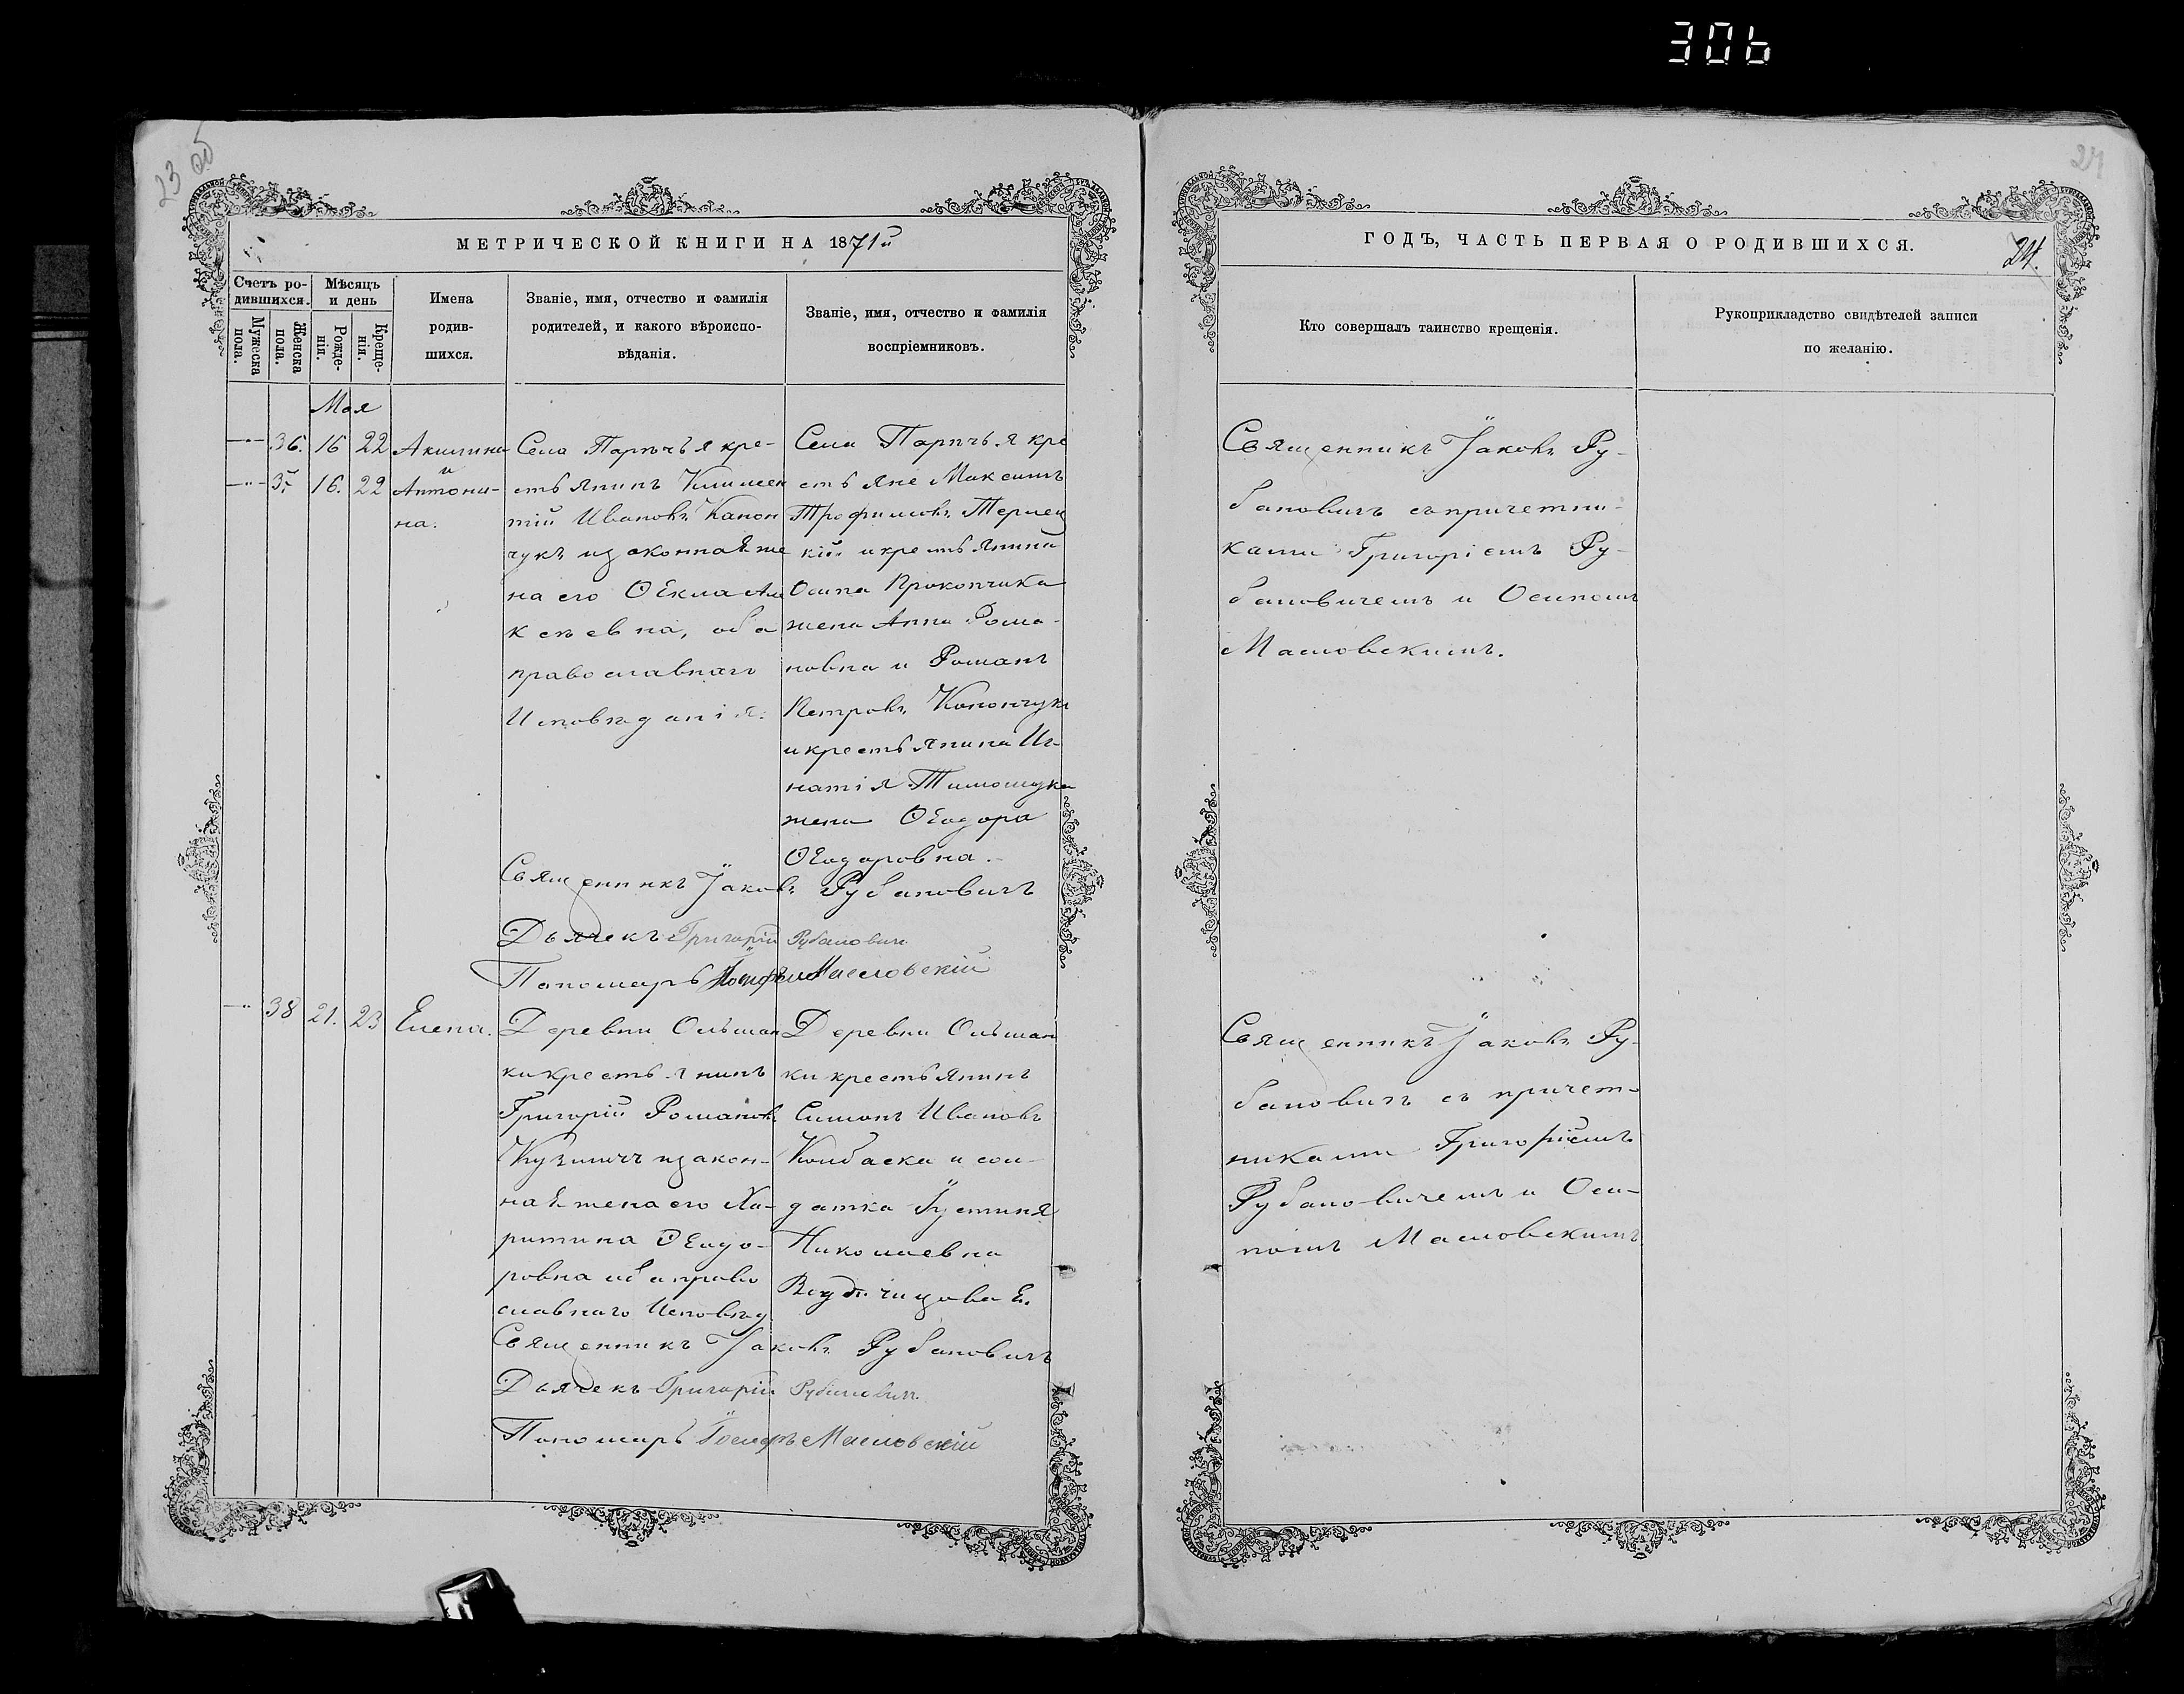 306
23 об
24
МЕТРИЧЕСКОЙ КНИГИ НА 1871й
ГОДЪ, ЧАСТЬ ПЕРВАЯ О РОДИВШИХСЯ.
24.
Счетъ ро-
дившихся.
Мужеска
пола.
Женска
пола.
Мѣсяцъ
и день
Рожде-
нія.
Креще-
нія.
Имена
родив-
шихся.
Званіе, имя, отчество и фамилія
родителей, и какого вѣроиспо-
вѣданія.
Званіе, имя, отчество и фамилія
воспріемниковъ.
Кто совершалъ таинство крещенія.
Рукоприкладство свидѣтелей записи
по желанію.
Мая
36. 16 22 Акилина
и
16. 22 Антони-
на.
Села Парѣчья кре-
стьянинъ Климен
тій Ивановъ Канон
чукъ изаконная же
на его Ѳекла Але
ксѣевна, оба
православнаго
Исповѣданія.
Села Парѣчья кре
стьяне Максимъ
Трофимовъ Терлец
кій и крестьянина
Осипа Прокопчика
жена Анна Рома-
новна и Романъ
Петровъ Конончукъ
и крестьянина Иг-
натія Тимошука
жена Ѳеодора
Ѳеодоровна.
Священникъ Іаковъ Ру-
бановичъ съ причетни-
ками Григоріемъ Ру-
бановичемъ и Осипомъ
Масловскимъ.
Священникъ Іаковъ Рубановичъ
Дьячекъ Григорій Рубановичъ
Пономарь Іосифъ Масловскій
38 21. 23 Елена.
Деревни Ольшан
ки крестьянинъ
Григорій Романовъ
Кузмичъ изакон-
ная жена его Ха-
ритина Ѳеодо-
ровна оба право
славнаго Исповѣд
Деревни Ольшан
ки крестьянинъ
Симонъ Ивановъ
Колбаска и сол-
датка Іустинія
Николаевна
Священникъ Іаковъ Ру-
бановичъ съ причет-
никами Григоріемъ
Рубановичемъ и Оси-
помъ Масловскимъ
Священникъ Іаковъ Рубановичъ
Дьячекъ Григорій Рубановичъ
Пономарь Іосифъ Масловскій